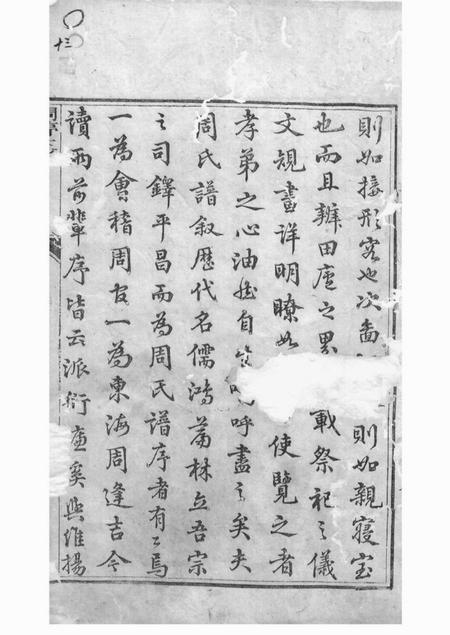 則如接形容也次圖則如親寢室
也而且辨田廬之累載祭祀之儀
文規畫詳明瞭如使覽之者
孝弟之心油然自呼盡之矣夫
周氏譜叙歷代名儒鴻篇林立吾宗
之司鐸平昌而為周氏譜序者有二焉
一為會稽周官一為東海周逢吉今
讀兩前輩序皆云派衍廬奚與維揚
十三